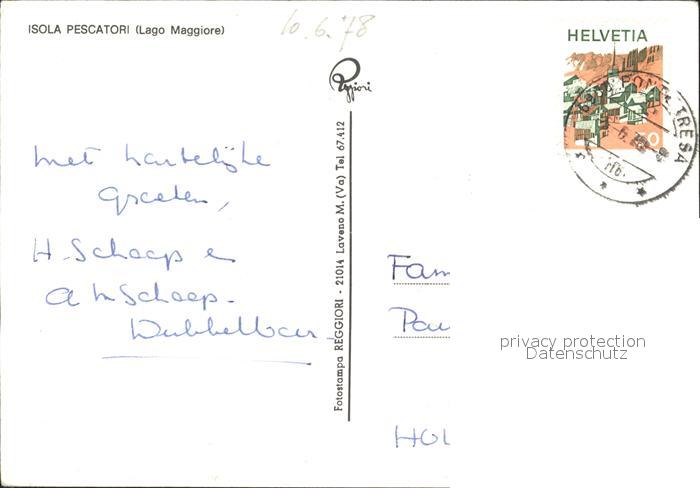 ISOLA PESCATORI (Lago Maggiore)
10.6.'78
HELVETIA
PONTE TRESA
Reggiori
met hartelijke
groeten,
H. Schaap en
A M Schaap-
Fotostampa REGGIORI - 21014 Laveno M. (Va) Tel 67.412
Fam
Pau
HOL
privacy protection
Datenschutz